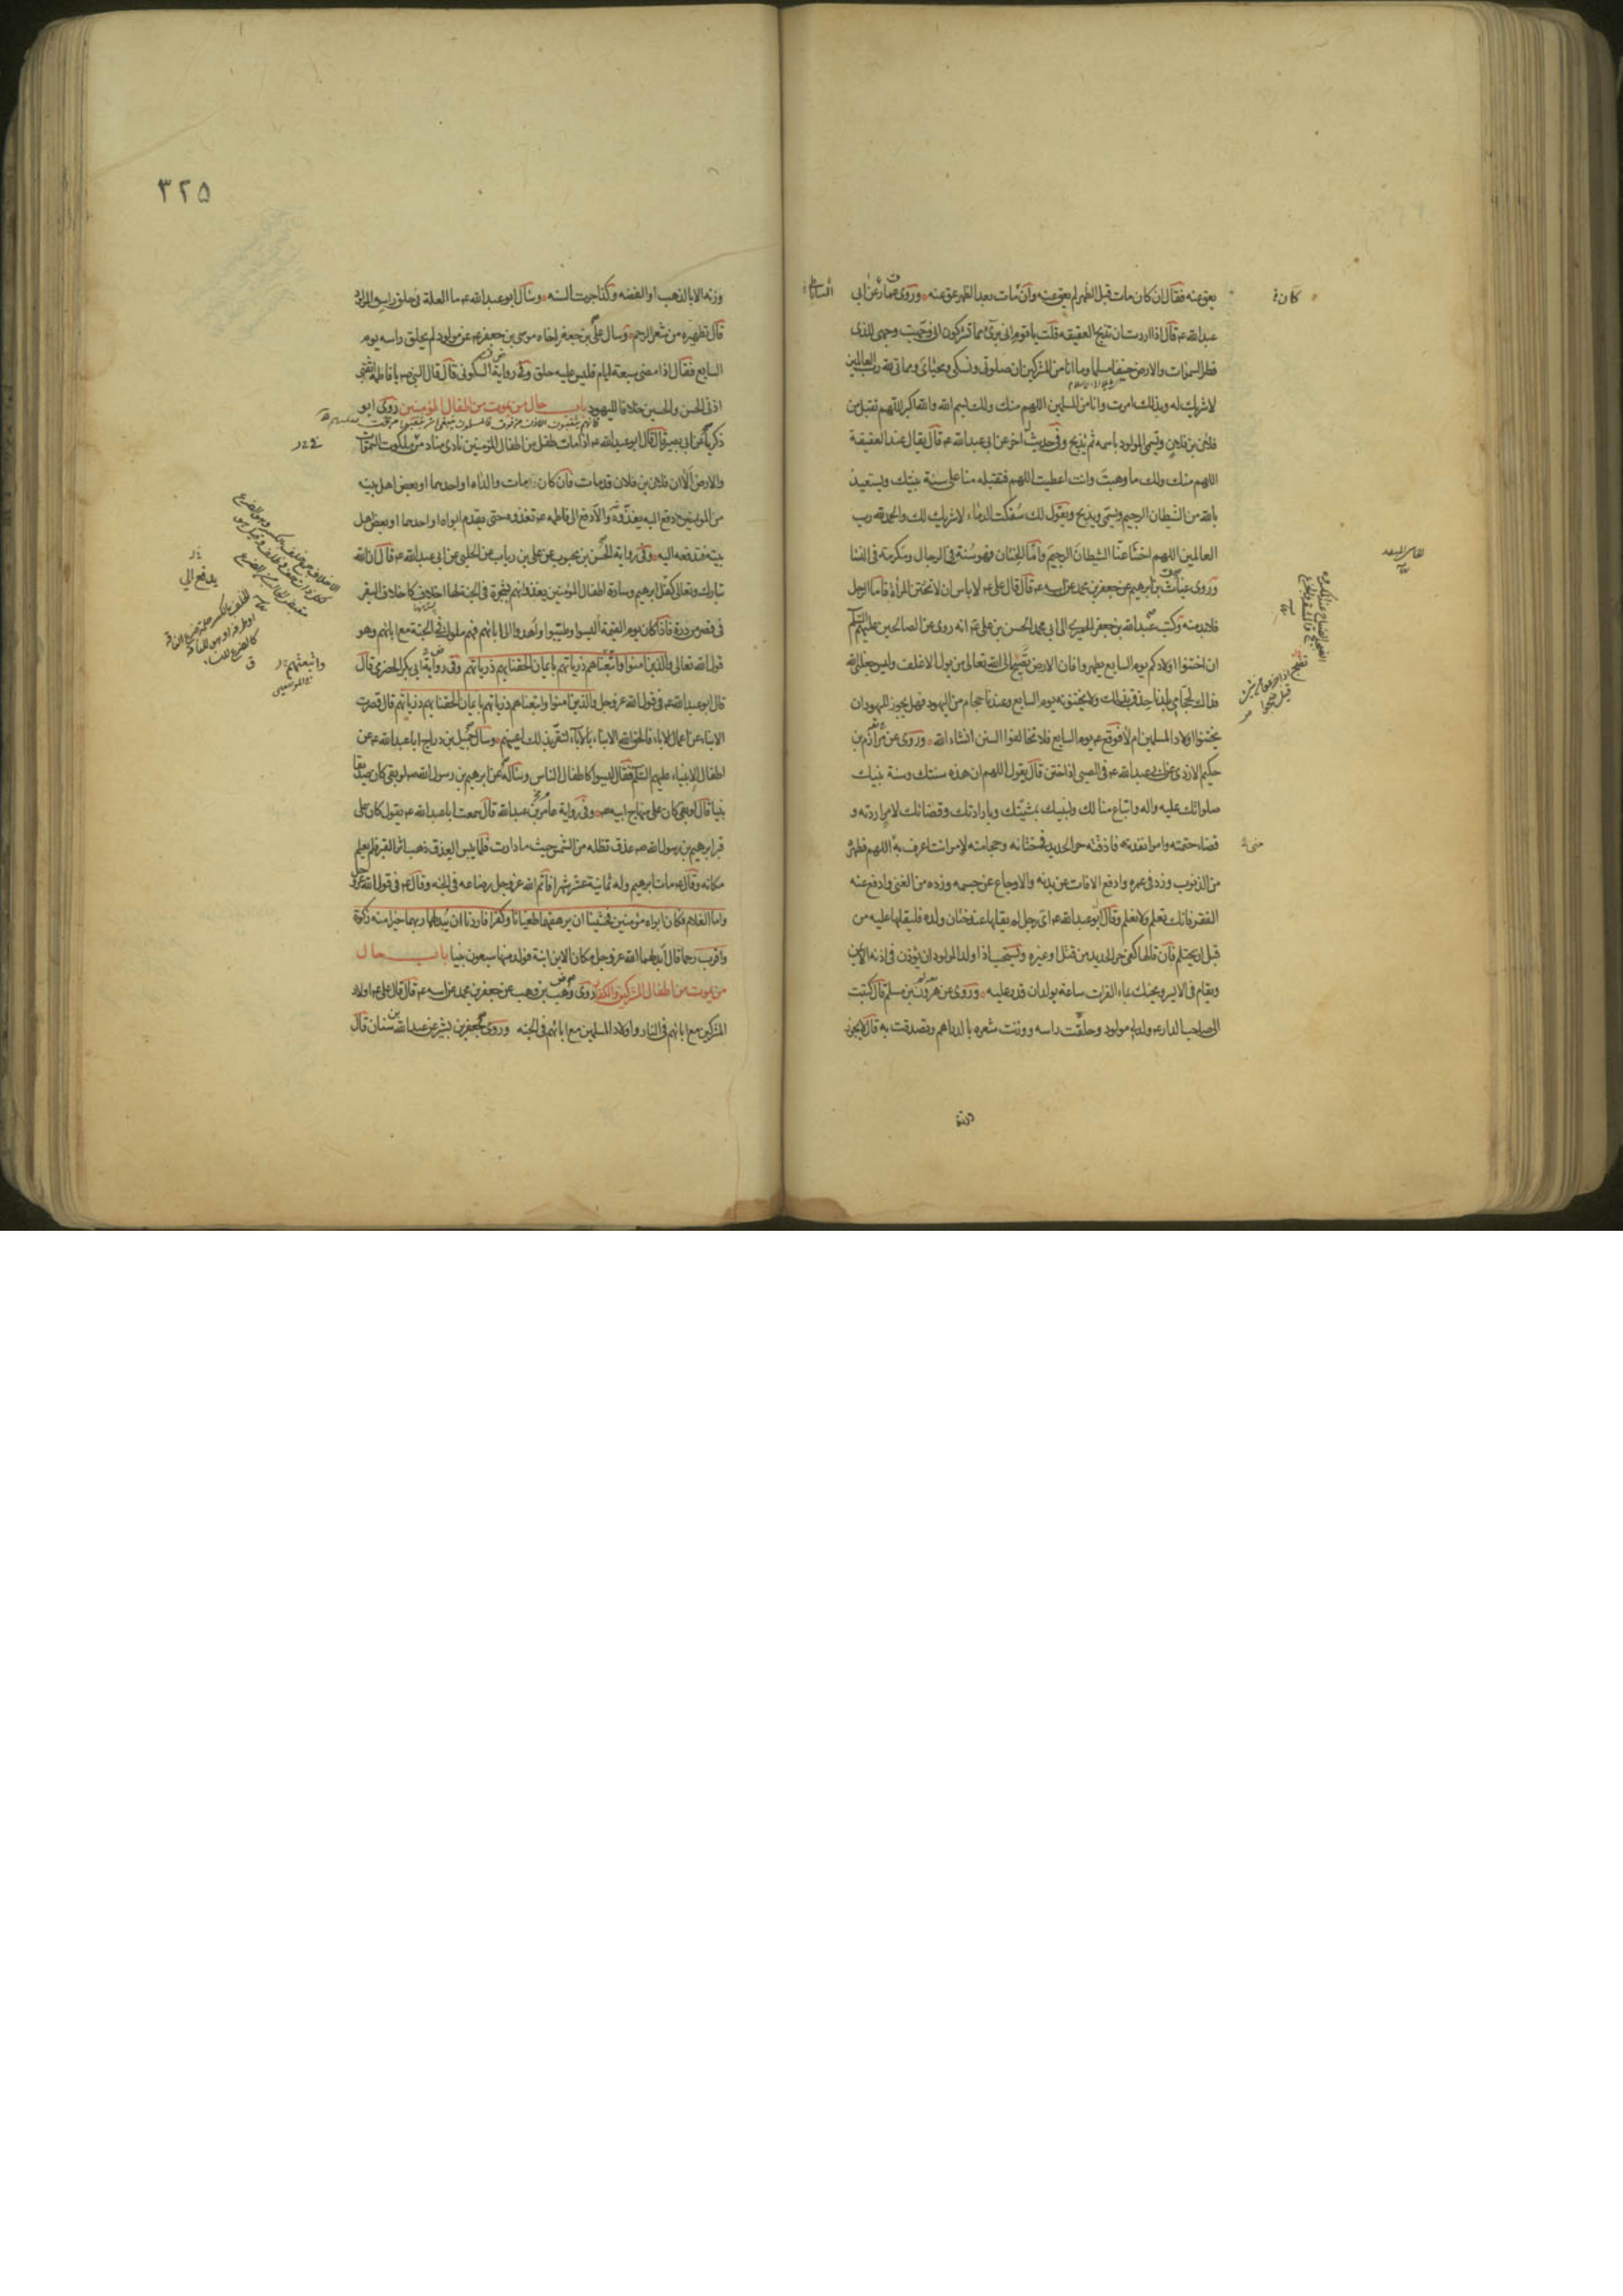 يعق عنه فقال ان كان مات قبل الظهر لم يعق عنه وان مات بعد الظهر عق عنه وروى عمار عن ابى
عبد الله ع قال اذا اردت ان تذبح العقيقه قلت يا قوم انى برئ مما تشركون انى وجهت وجهى للذى
فطر السموات والارض حنيفا مسلما وما انا من المشركين ان صلوتى ونسكى ومحياى ومماتى لله رب العالمين
لا شريك له وبذلك امرت وانا من المسلمين اللهم منك ولك بسم الله والله اكبر اللهم تقبل من
فلان بن فلان وتسمى المولود باسمه ثم تذبح وفى حديث آخر عن ابى عبد الله ع قال يقال عند العقيقة
اللهم منك ولك ما وهبت وانت اعطيت اللهم فتقبله منا على سنة نبيك ويستعيذ
بالله من الشيطان الرجيم ويسمى ويذبح ويقول لك سفكت الدماء لا شريك لك والحمد لله رب
العالمين اللهم اخسأ عنا الشيطان الرجيم واما الختان فهو سنة فى الرجال ومكرمة فى النسا
وروى غياث بن ابرهيم عن جعفر بن محمد عن ابيه ع قال قال على ع لا باس ان لا تختتن المراة فاما الرجل
فلا بد منه وكتب عبد الله بن جعفر الحميرى الى ابى محمد الحسن بن على ع انه روى عن الصالحين عليهم السلام
ان اختنوا اولادكم يوم السابع يطهروا فان الارض تضج الى الله تعالى من بول الاغلف وليس جعلنى الله
فداك لحجامى بلدنا حذق بذلك ولا يختنونه يوم السابع وعندنا حجام من اليهود فهل يجوز لليهود ان
يختنوا اولاد المسلمين ام لا فوقع ع يوم السابع فلا تخالفوا السنن انشاء الله وروى عن مرازم بن
حكيم الازدى عن ابى عبد الله ع فى الصبى اذا ختن قال يقول اللهم ان هذه سنتك وسنة نبيك
صلواتك عليه واله واتباع منا لك ولنبيك بمشيتك وبارادتك وقضائك لامر اردته و
قضاء حتمته وامر انفذته فاذقته حر الحديد فى ختانه وحجامته لامر انت اعرف به اللهم فطهره
من الذنوب وزد فى عمره وادفع الافات عن بدنه والاوجاع عن جسمه وزده من الغنى وادفع عنه
الفقر فانك تعلم ولا نعلم وقال ابو عبد الله ع اى رجل لم يقلها عند ختان ولده فليقلها عليه من
قبل ان يحتلم فان قالها كفى حر الحديد من قتل او غيره ويستحب اذا ولد المولود ان يؤذن فى اذنه الايمن
ويقام فى الايسر ويحنك بماء الفرات ساعة يولد ان قدر عليه وروى عن هرون بن مسلم قال كتبت
الى صاحب الدار ع ولد لى مولود وحلقت راسه ووزنت شعره بالدراهم وتصدقت به قال لا يجوز
وزنه
كان
٣٢٥
وزنه الا بالذهب او الفضه وكذا جرت السنه وسئل ابو عبد الله ع ما العلة فى حلق راس المولود
قال تطهيره من شعر الرحم وسال على بن جعفر اخاه موسى بن جعفر ع عن مولود لم يحلق راسه يوم
السابع فقال اذا مضى سبعة ايام فليس عليه حلق وفى رواية السكونى قال قال النبى ص يا فاطمة اثقبى
اذنى الحسن والحسين خلافا لليهود باب حال من يموت من اطفال المؤمنين روى ابو
ذكريا عن ابى بصير قال قال ابو عبد الله ع اذا مات طفل من اطفال المؤمنين نادى مناد من ملكوت السموات
والارض الا ان فلان بن فلان قد مات فان كان مات والداه او احدهما او بعض اهل بيته
من المؤمنين دفع اليه يغذوه والا دفع الى فاطمه ع تغذوه حتى يقدم ابواه او احدهما او بعض اهل
بيته فتدفعه اليه وفى رواية الحسن بن محبوب عن على بن رباب عن الحلبى عن ابى عبد الله ع قال ان الله
تبارك وتعالى كفل ابرهيم وسارة اطفال المؤمنين يغذوانهم بشجرة فى الجنة لها اخلاف كاخلاف البقر
فى قصر من درة فاذا كان يوم القيمة البسوا وطيبوا واهدوا الى ابائهم فهم ملوك فى الجنة مع ابائهم وهو
قول الله تعالى والذين امنوا واتبعناهم ذرياتهم بايمان الحقنا بهم ذرياتهم وفى رواية ابى بكر الحضرمى قال
قال ابو عبد الله ع فى قول الله عز وجل والذين امنوا واتبعناهم ذرياتهم بايمان الحقنا بهم ذرياتهم قال قصرت
الابناء عن اعمال الاباء فالحق الله الابناء بالاباء لتقر بذلك اعينهم وسال جميل بن دراج ابا عبد الله ع عن
اطفال الانبياء عليهم السلام فقال ليسوا كاطفال الناس وساله عن ابرهيم بن رسول الله ص لو بقى كان صديقا
نبيا قال لو بقى كان على منهاج ابيه ص وفى رواية عامر بن عبد الله قال سمعت ابا عبد الله ع يقول كان على
قبر ابرهيم بن رسول الله ص عذق تظله من الشمس حيث ما دارت فلما يبس العذق ذهب اثر القبر فلم يعلم
مكانه وقال ع مات ابرهيم وله ثمانية عشر شهرا فاتم الله عز وجل رضاعه فى الجنه وقال ع فى قول الله عز وجل
واما الغلام فكان ابواه مؤمنين فخشينا ان يرهقهما طغيانا وكفرا فاردنا ان يبدلهما ربهما خيرا منه زكوة
واقرب رحما قال ابدلهما الله عز وجل مكان الابن ابنة فولد منها سبعون نبيا باب حال
من يموت من اطفال المشركين والكفار روى وهب بن وهب عن جعفر بن محمد عن ابيه ع قال قال على ع اولاد
المشركين مع ابائهم فى النار واولاد المسلمين مع ابائهم فى الجنه وروى جعفر بن بشير عن عبد الله بن سنان قال
يدفع الى
واتبعتهم